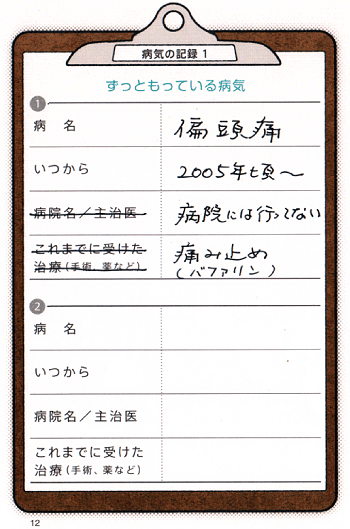 病気の記録 1
ずっともっている病気
1
病 名 偏頭痛
いつから 2005年頃〜
病院名／主治医 病院には行ってない
これまでに受けた 痛み止め
治療（手術、薬など） (バファリン)
2
病 名
いつから
病院名／主治医
これまでに受けた
治療（手術、薬など）
12